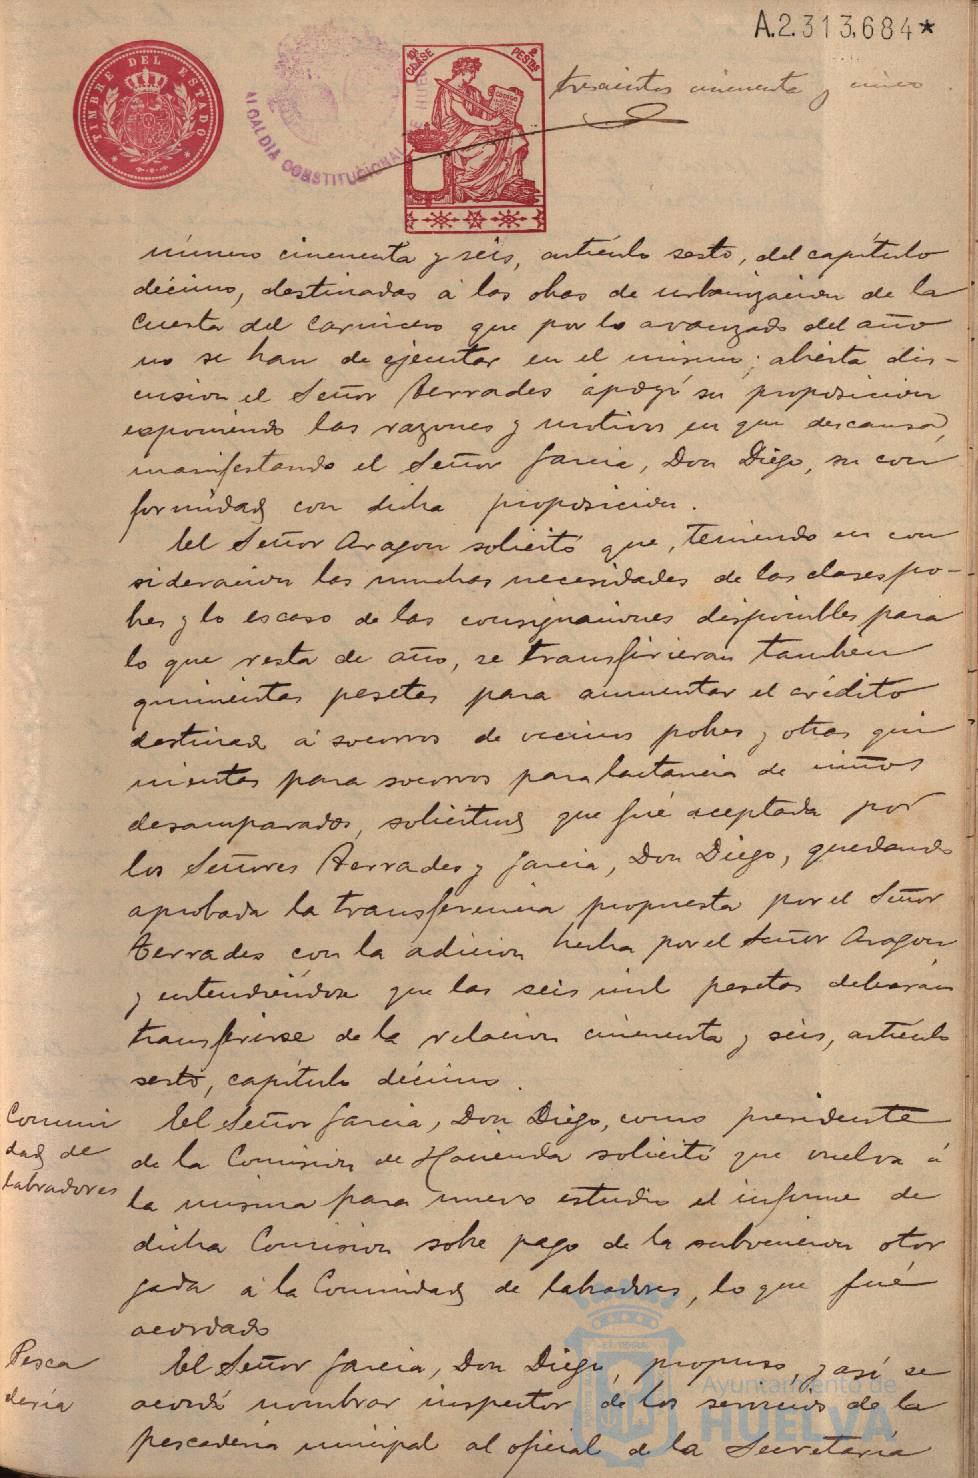 A.2.313.684*
TIMBRE DEL ESTADO
ALCALDIA CONSTITUCIONAL DE HUELVA
10ª CLASE 2 PESETAS
trescientos cincuenta y cinco
número cincuenta y seis, artículo sesto, del capítulo
décimo, destinadas á las obras de urbanizacion de la
Cuesta del Carnicero que por lo avanzado del año
no se han de ejecutar en el mismo; abierta dis-
cusion el Señor Terrades apoyó su proposicion
exponiendo las razones y motivos en que descansa,
manifestando el Señor Garcia, Don Diego, su con
formidad con dicha proposicion.
El Señor Aragon solicitó que, teniendo en con
sideracion las muchas necesidades de las clases po-
bres y lo escaso de las consignaciones disponibles para
lo que resta de año, se transfirieran tambien
quinientas pesetas para aumentar el crédito
destinado á socorros de vecinos pobres y otras qui
nientas para socorros para lactancia de niños
desamparados, solicitud que fué aceptada por
los Señores Terrades y Garcia, Don Diego, quedando
aprobada la transferencia propuesta por el Señor
Terrades con la adicion hecha por el Señor Aragon
y entendiéndose que las seis mil pesetas deberán
transferirse de la relacion cincuenta y seis, artículo
sesto, capítulo décimo.
Comuni
dad de
labradores
El Señor Garcia, Don Diego, como presidente
de la Comision de Hacienda solicitó que vuelva á
la misma para nuevo estudio el informe de
dicha Comision sobre pago de la subvencion otor
gada á la Comunidad de labradores, lo que fué
acordado
Pesca
deria
El Señor Garcia, Don Diego, propuso, y así se
acordó nombrar inspector de los servicios de la
pescaderia municipal al oficial de la Secretaría
Ayuntamiento de
HUELVA